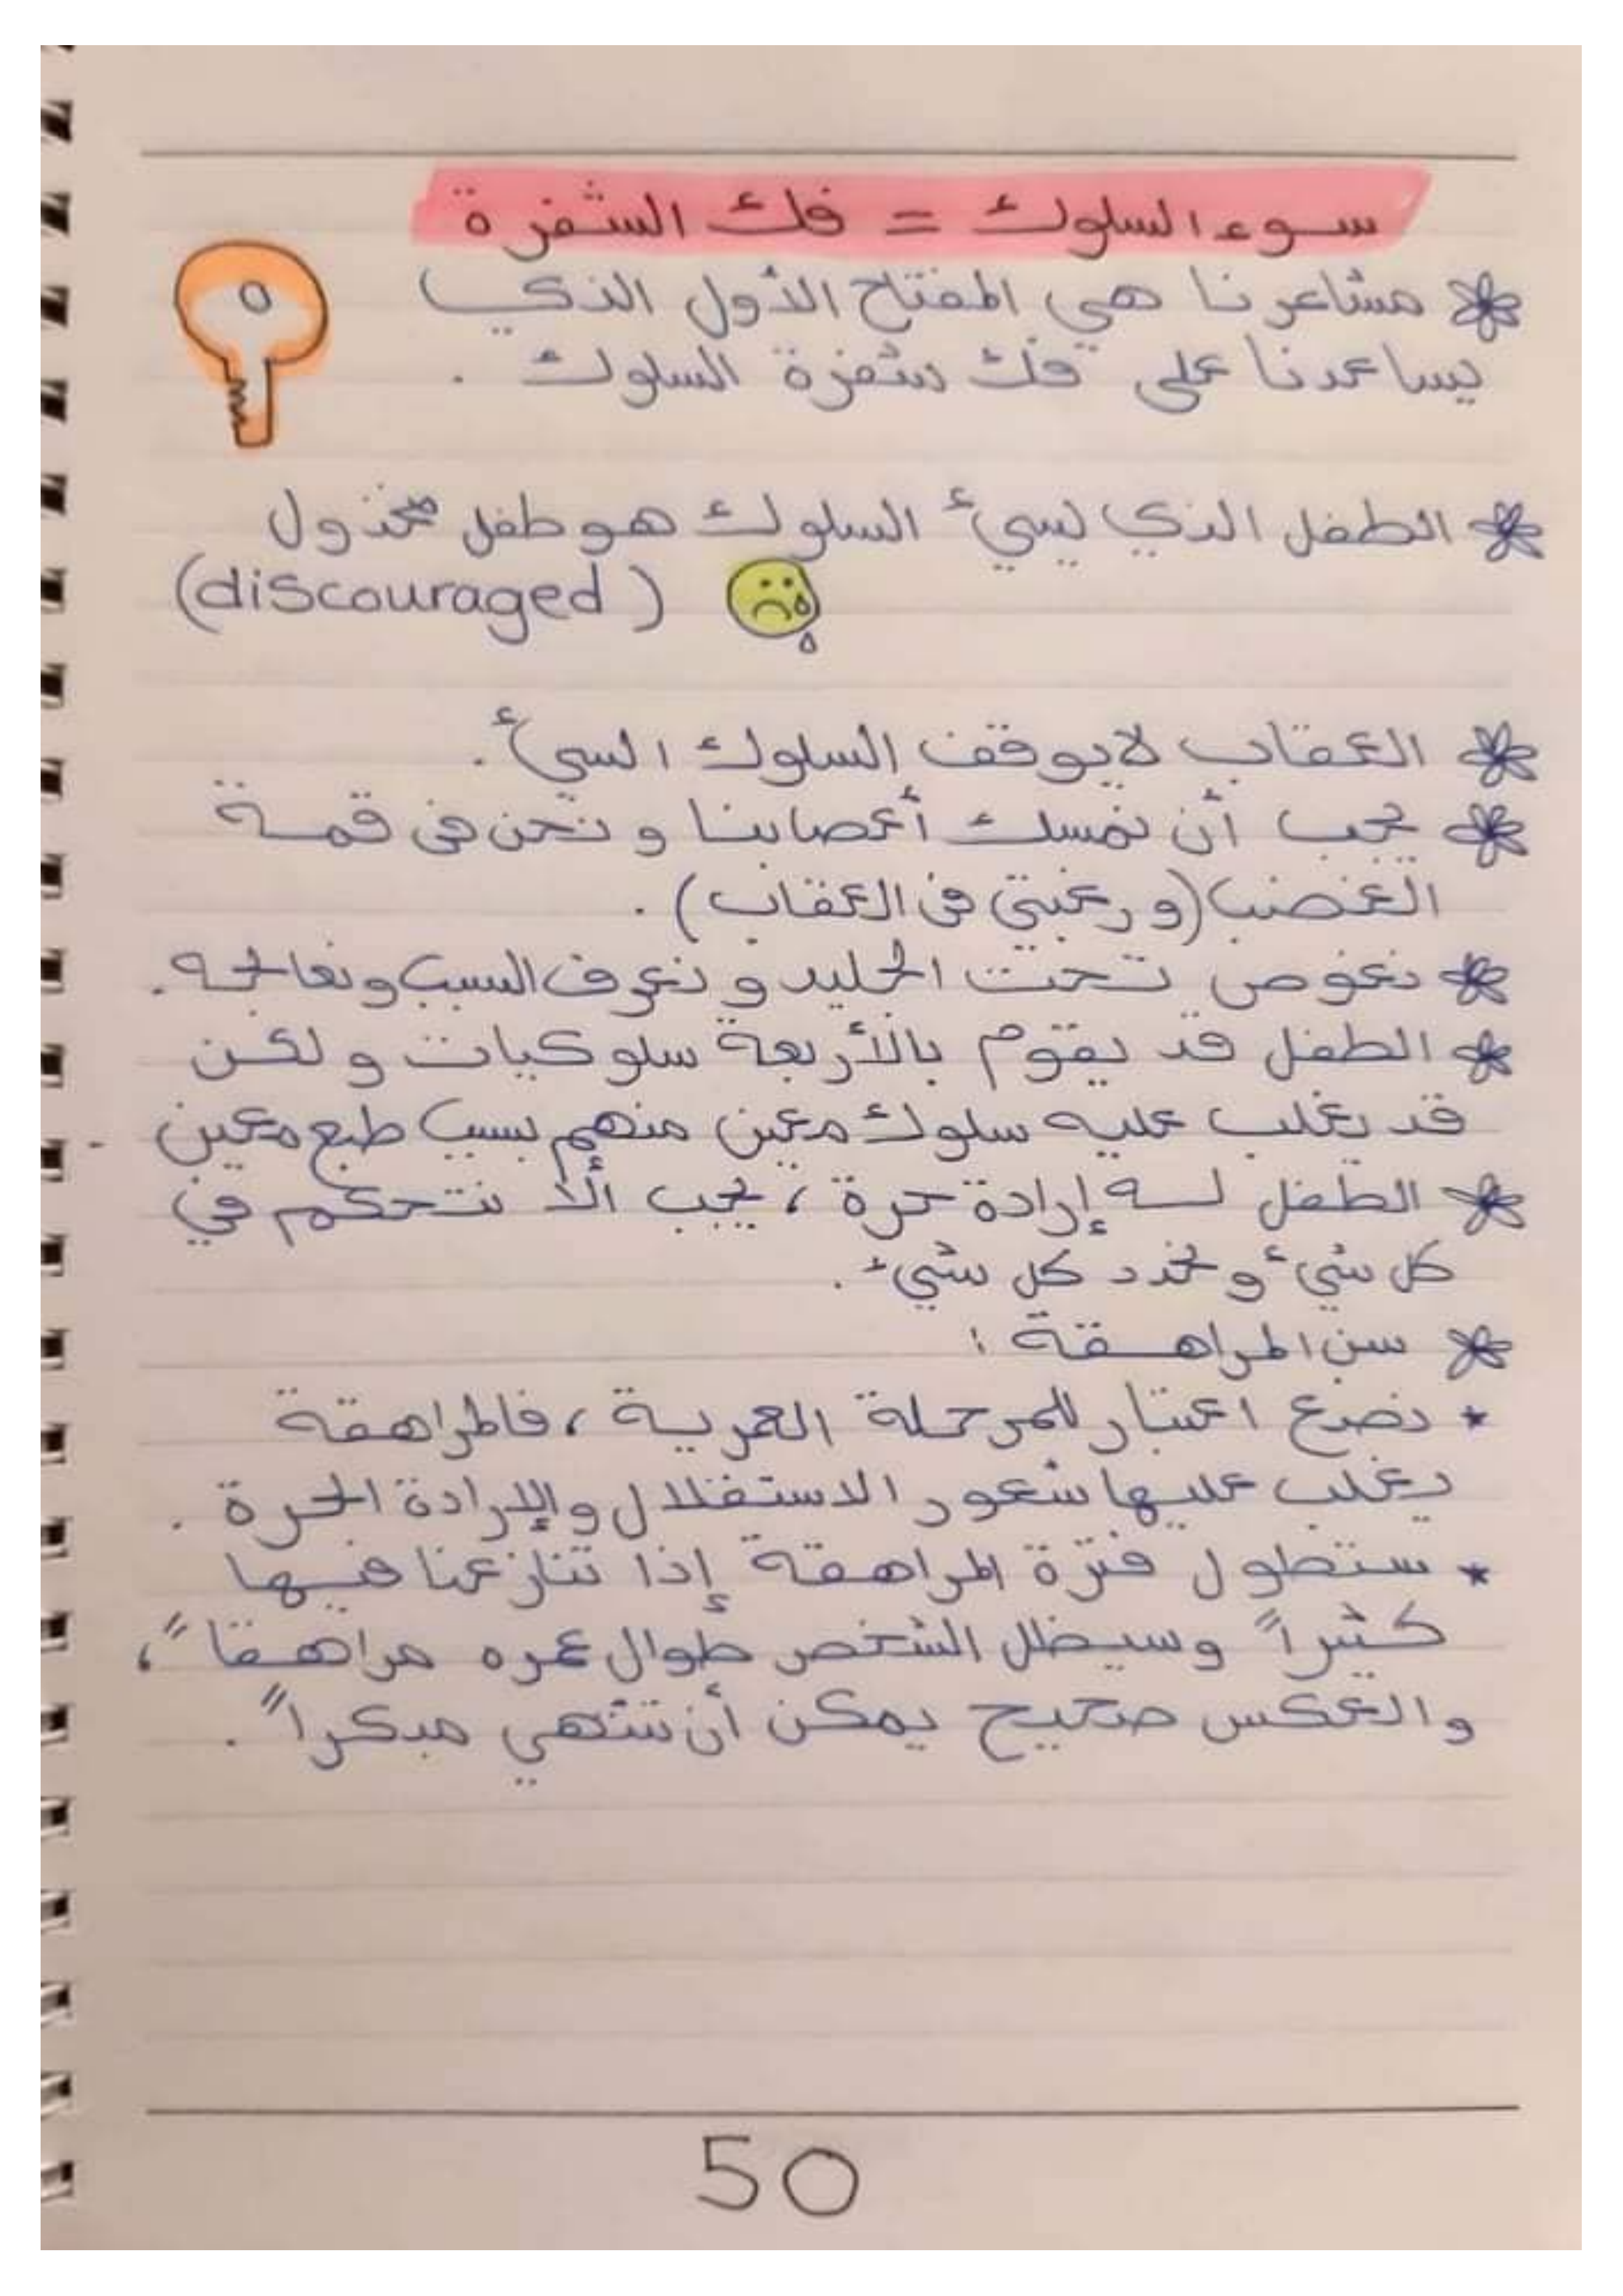 سوء السلوك = فك الشفرة
مشاعرنا هي المفتاح الأول الذي
يساعدنا على فك شفرة السلوك .
الطفل الذي يسيء السلوك هو طفل مخذول
(discouraged)
العقاب لا يوقف السلوك السيء .
يجب أن نمسك أعصابنا و نحن في قمة
الغضب (و رغبتي في العقاب) .
نغوص تحت الجليد و نعرف السبب و نعالجه .
الطفل قد يقوم بالأربعة سلوكيات و لكن
قد يغلب عليه سلوك معين منهم بسبب طبع معين
الطفل له إرادة حرة ، يجب ألا نتحكم في
كل شيء و نحدد كل شيء .
سن المراهقة :
* نضع اعتبار للمرحلة العمرية ، فالمراهقة
يغلب عليها شعور الاستقلال والإرادة الحرة .
* ستطول فترة المراهقة إذا تنازعنا فيها
كثيراً وسيظل الشخص طوال عمره مراهقاً ،
والعكس صحيح يمكن أن تنتهي مبكراً .
50